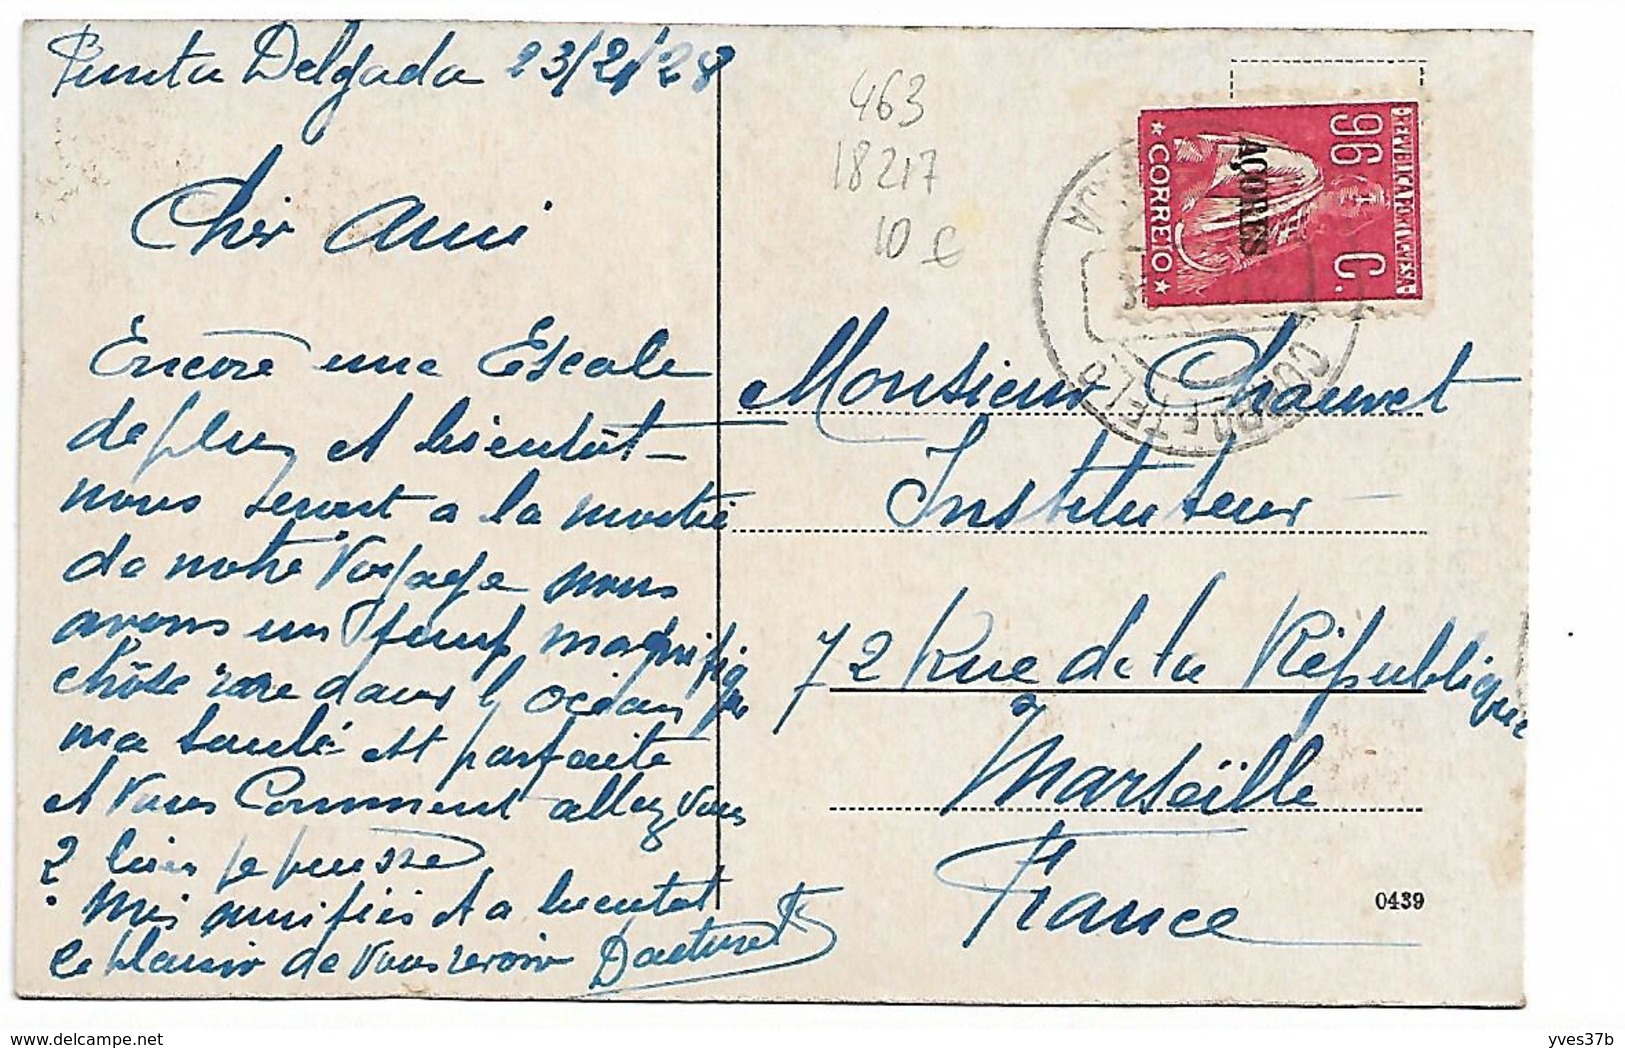 Punta Delgada 23/2/28
Cher Ami
Encore une Escale
de plus et bientôt
nous seront a la moitié
de notre Voyage nous
avons un temps magnifique
chose rare dans l'océan
ma santé est parfaite
et Vous Comment allez vous
? bien je pense
Mes amitiés et a bientot
le plaisir de Vous revoir
463
18217
10 €
REPUBLICA PORTUGUESA
96 C.
AÇORES
★ CORREIO ★
CORREIO E TELEG
Monsieur Chauvet
Instituteur
72 Rue de la République
Marseille
France
0439
yves37b